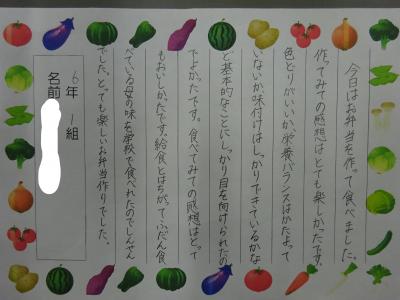 今日はお弁当を作って食べました。
作ってみての感想はとても楽しかったです。
色どりがいいか、栄養バランスはかたよって
いないか味付けはしっかりできているかな
ど基本的なことにしっかり目を向けられたの
でよかったです。食べてみての感想はとって
もおいしかったです。給食とはちがってふだん食
べている母の味を学校で食べれたのでしんせん
でした。とても楽しいお弁当作りでした。
6年1組
名前